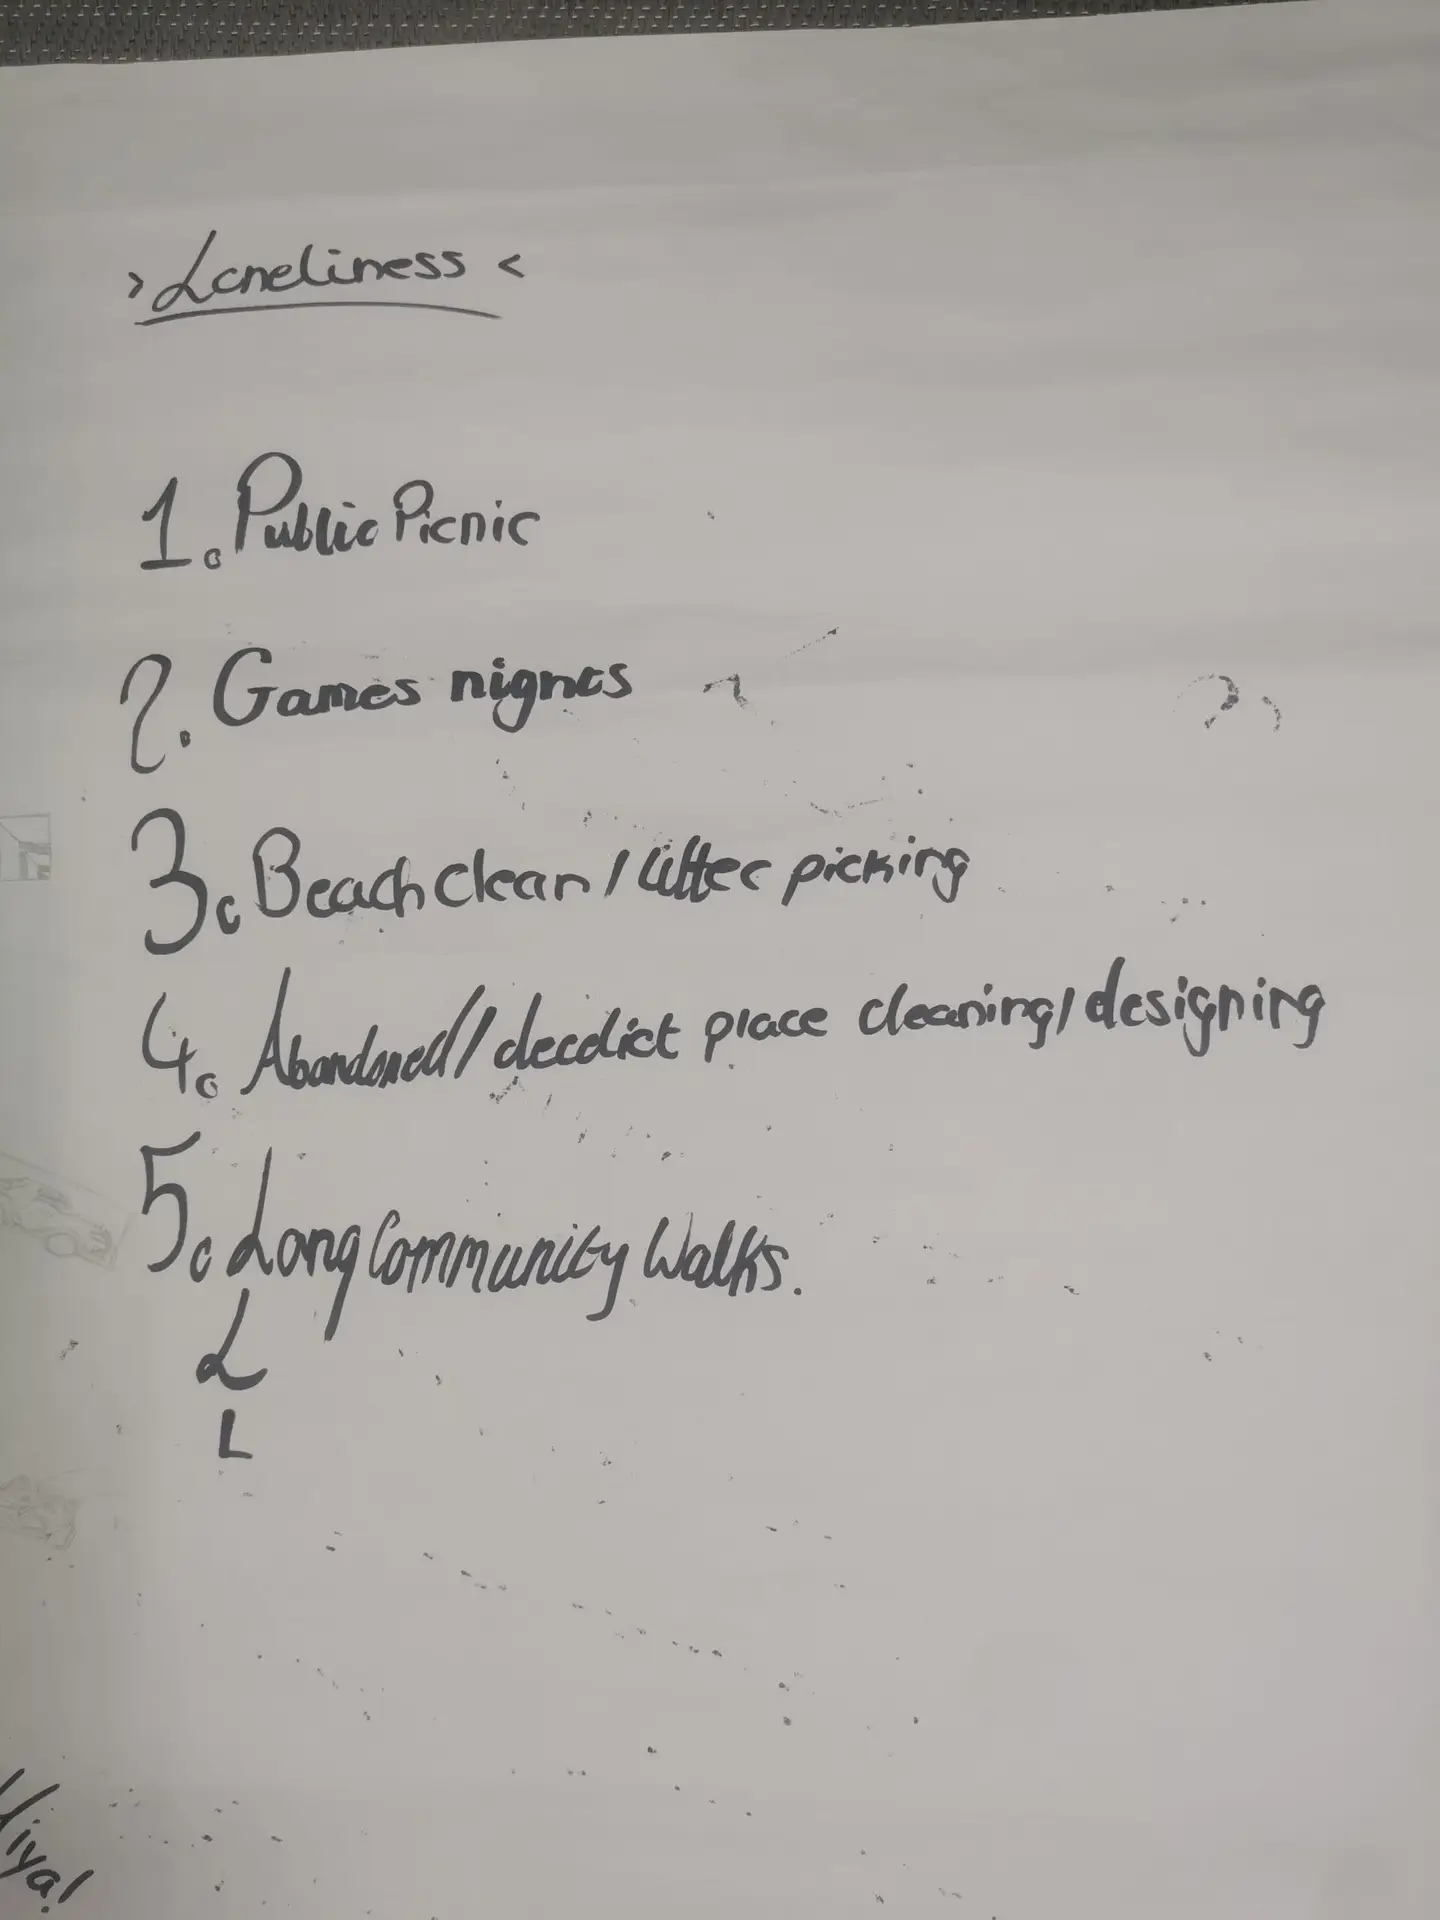 > Loneliness <
1. Public Picnic
2. Games nights
3. Beach clean / litter picking
4. Abandoned / deedict place cleaning / designing
5. Long Community Walks.
L
L
Hiya!